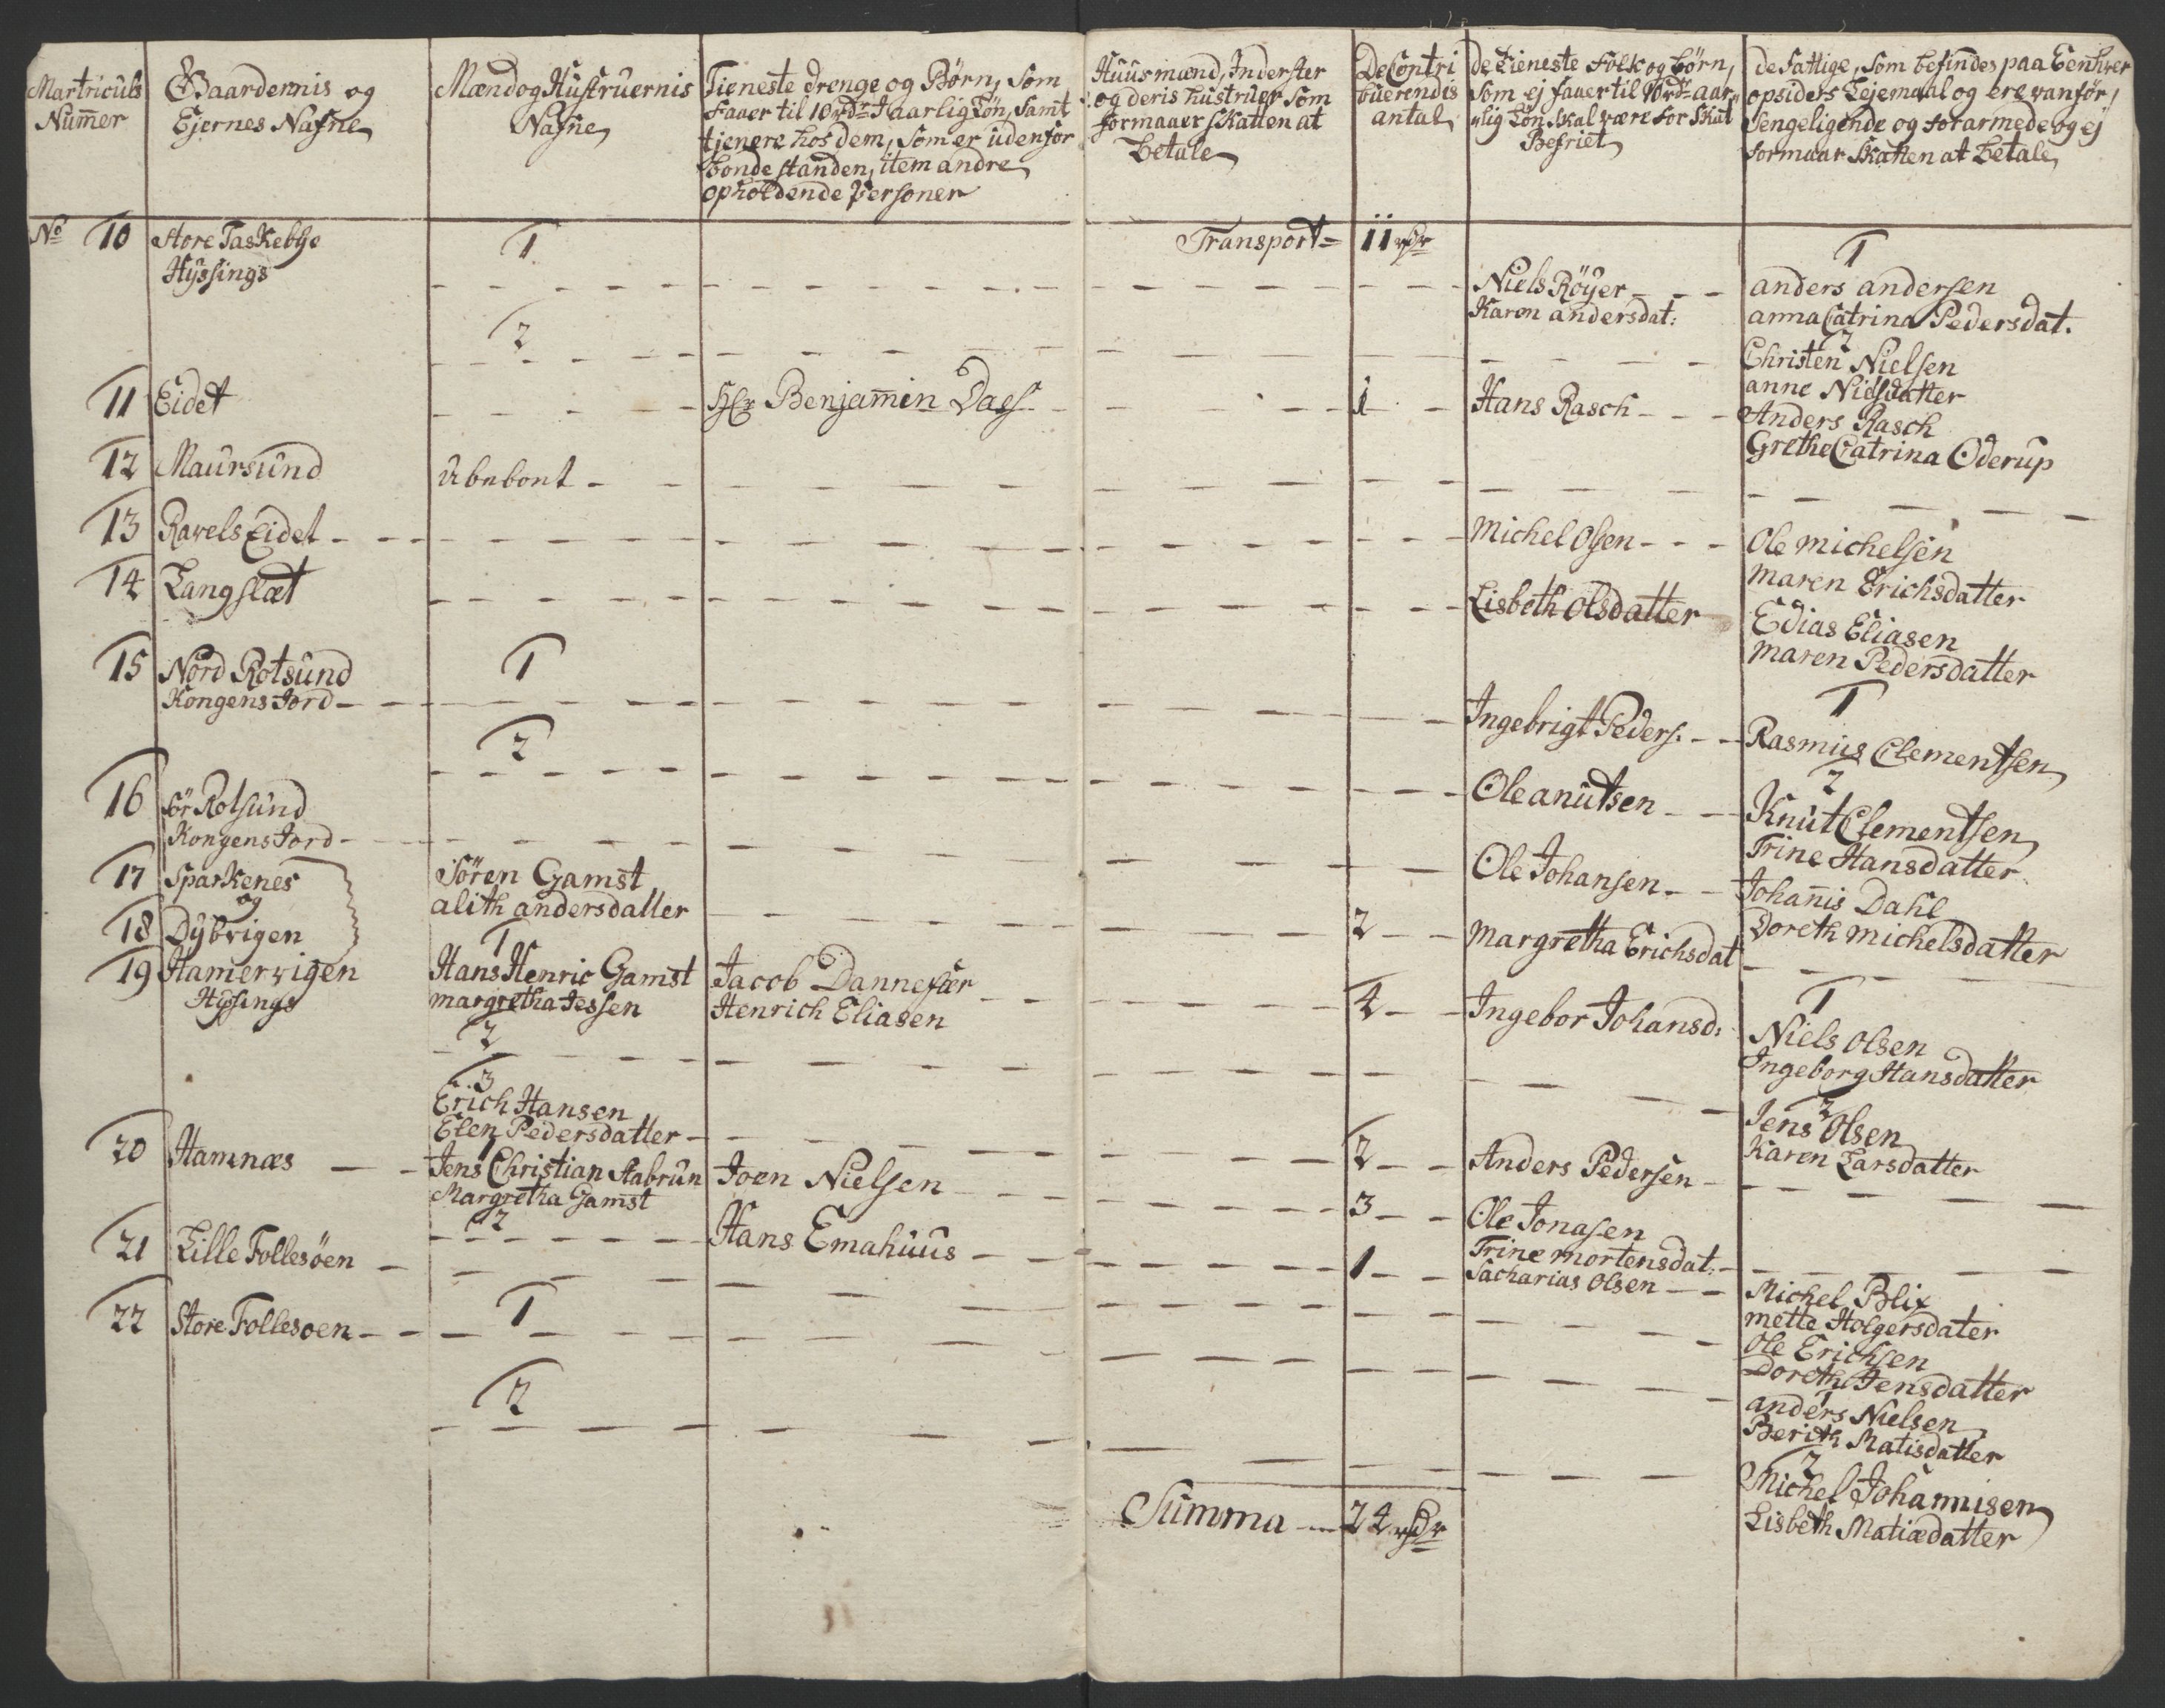 Martriculs
Numer
Gaardernis og
Ejernes Nafne
Mænd og Hustruernis
Nafne
Tieneste drenge og Börn, Som
faaer til 10 rdr Jaarlig Lön, Samt
tjenere hos dem, Som er udenfor
bondestanden, item andre
opholdende Personer
Huusmænd, Inderster
og deris hustruer Som
formaaer Skatten at
betale
De Contri
buerendis
antal
de tieneste folk og börn,
Som ej faaer til 10 rdr aar
lig Lön Skal være for Skat
Befriet
de fattige, Som befindes paa Eenhver
opsiders Lejemaal og ere vanför,
Sengeligende og forarmede og ej
formaar Skatten at betale
No 10 Store Taskebye
Hyssings
1
Transport = 11 rdr
1
Niels Röyer
Karen andersdat:
anders andersen
anna Catrina Pedersdat.
2
2
Christen Nielsen
anne Nielsdatter
11 Eidet
Hr Benjamin Dass
1
Hans Rasch
Anders Rasch
Grethe Catrina Oderup
12 Maursund
Ubebont
13 Ravels Eidet
Michel Olsen
Ole Michelsen
maren Erichsdatter
14 Langslæt
Lisbeth Olsdatter
Edias Eliasen
maren Pedersdatter
15 Nord Rotsund
Kongens Jord
1
Ingebrigt Peders:
1
Rasmus Clementsen
2
Ole anutsen
2
Knut Clementsen
Trine Hansdatter
16 Sör Rotsund
Kongens Jord
Ole Johansen
Johanis Dahl
Doreth Michelsdatter
17 Sparkenes
og
18 Dybvigen
Sören Gamst
alith andersdatter
2
Margretha Erichsdat
19 Hamervigen
Hysings
1
Hans Henric Gamst
margretha Jessen
Jacob Dannefær
Henrich Eliasen
4
Ingebor Johansd:
1
Niels Olsen
Ingeborg Hansdatter
2
2
Jens Olsen
Karen Larsdatter
3
Erich Hansen
Elen Pedersdatter
2
Anders Pedersen
20 Hamnæs
1
Jens Christian Stabrun
Margretha Gamst
Joen Nielsen
3
Ole Jonasen
Trine mortensdat:
2
Hans Emahuus
1
Sacharias Olsen
Michel Blix
mette Holgersdater
21 Lille Follesöen
Ole Erichsen
Dorethe Jensdatter
22 Store Follesoen
1
1
anders Nielsen
Berith Matisdatter
2
2
Michel Johannisen
Lisbeth Matiædatter
Summa 24 rdr